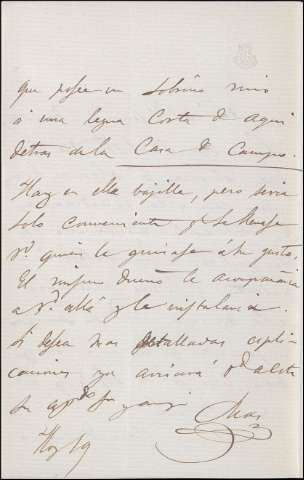 que posee un sobrino mio
á una legua corta de aqui
detras de la Casa de Campo.
Hay en ella bajilla, pero seria
solo conveniente q. se llevase
V. quien le guisase á su gusto.
El mismo dueño le acompañaria
a V. allá y le instalaria.
Si desea mas detalladas espli-
caciones ya
su
Hoy 19